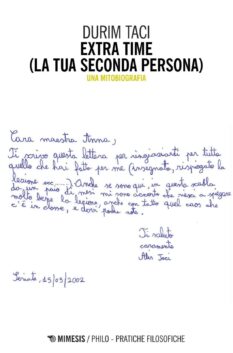 DURIM TACI
EXTRA TIME
(LA TUA SECONDA PERSONA)
UNA MITOBIOGRAFIA
Cara maestra Anna,
Ti scrivo questa lettera per ringraziarti per tutto
quello che hai fatto per me (insegnato, rispiegato la
lezione ecc....) Anche se sono qui, in questa scuola
da un paio di mesi mi sono accorto che riesci a spiegare
molto bene la lezione, anche con tutto quel caos che
c'è in classe, e devi
Ti saluto
caramente
Taci
Seriate, 15/03/2002
MIMESIS / PHILO - PRATICHE FILOSOFICHE